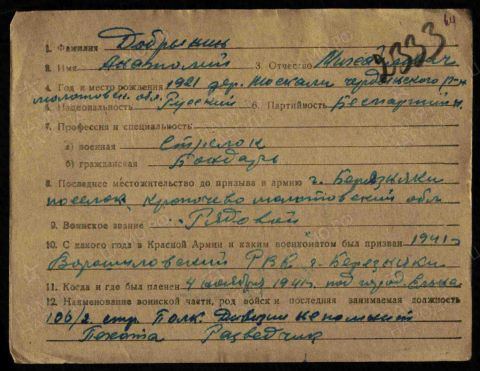 64
2333
1. Фамилия Добрынин
2. Имя Анатолий 3. Отчество Михайлович
4. Год и место рождения 1921 дер. Москали Чердынского р-н
молотовск. обл.
5. Национальность Русский 6. Партийность Беспартийн.
7. Профессия и специальность
а) военная Стрелок
б) гражданская
8. Последнее местожительство до призыва в армию г. Березники
поселок Молотовский обл.
9. Воинское звание Рядовой
10. С какого года в Красной Армии и каким военкоматом был призван 1941 г
Ворошиловский РВК г. Березники
11. Когда и где был пленен 4 ноября 1941 г. под город
12. Наименование воинской части, род войск и последняя занимаемая должность
106/2 стр. Полк. Дивизии
Пехота Разведчик